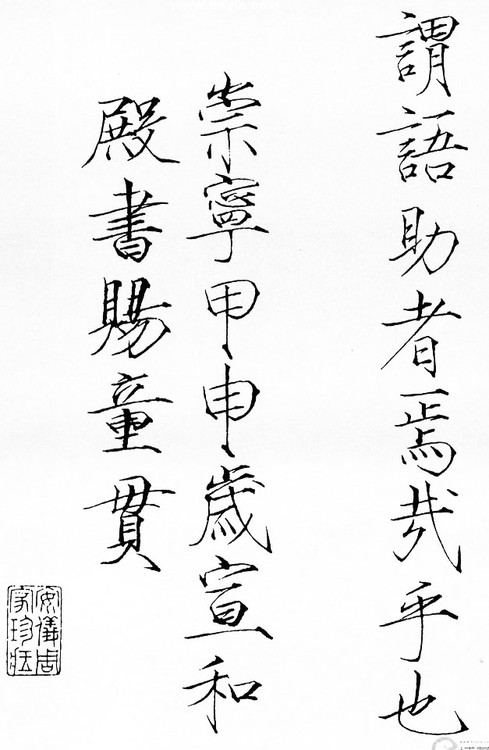 謂語助者焉哉乎也
崇寧甲申歲宣和
殿書賜童貫
安儀周家珍藏